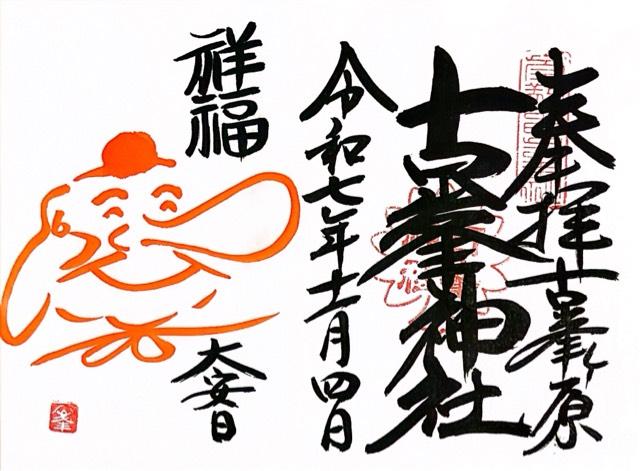 奉拝 古峯ヶ原
古峯神社
令和七年十二月四日
祥福
大安日
峯